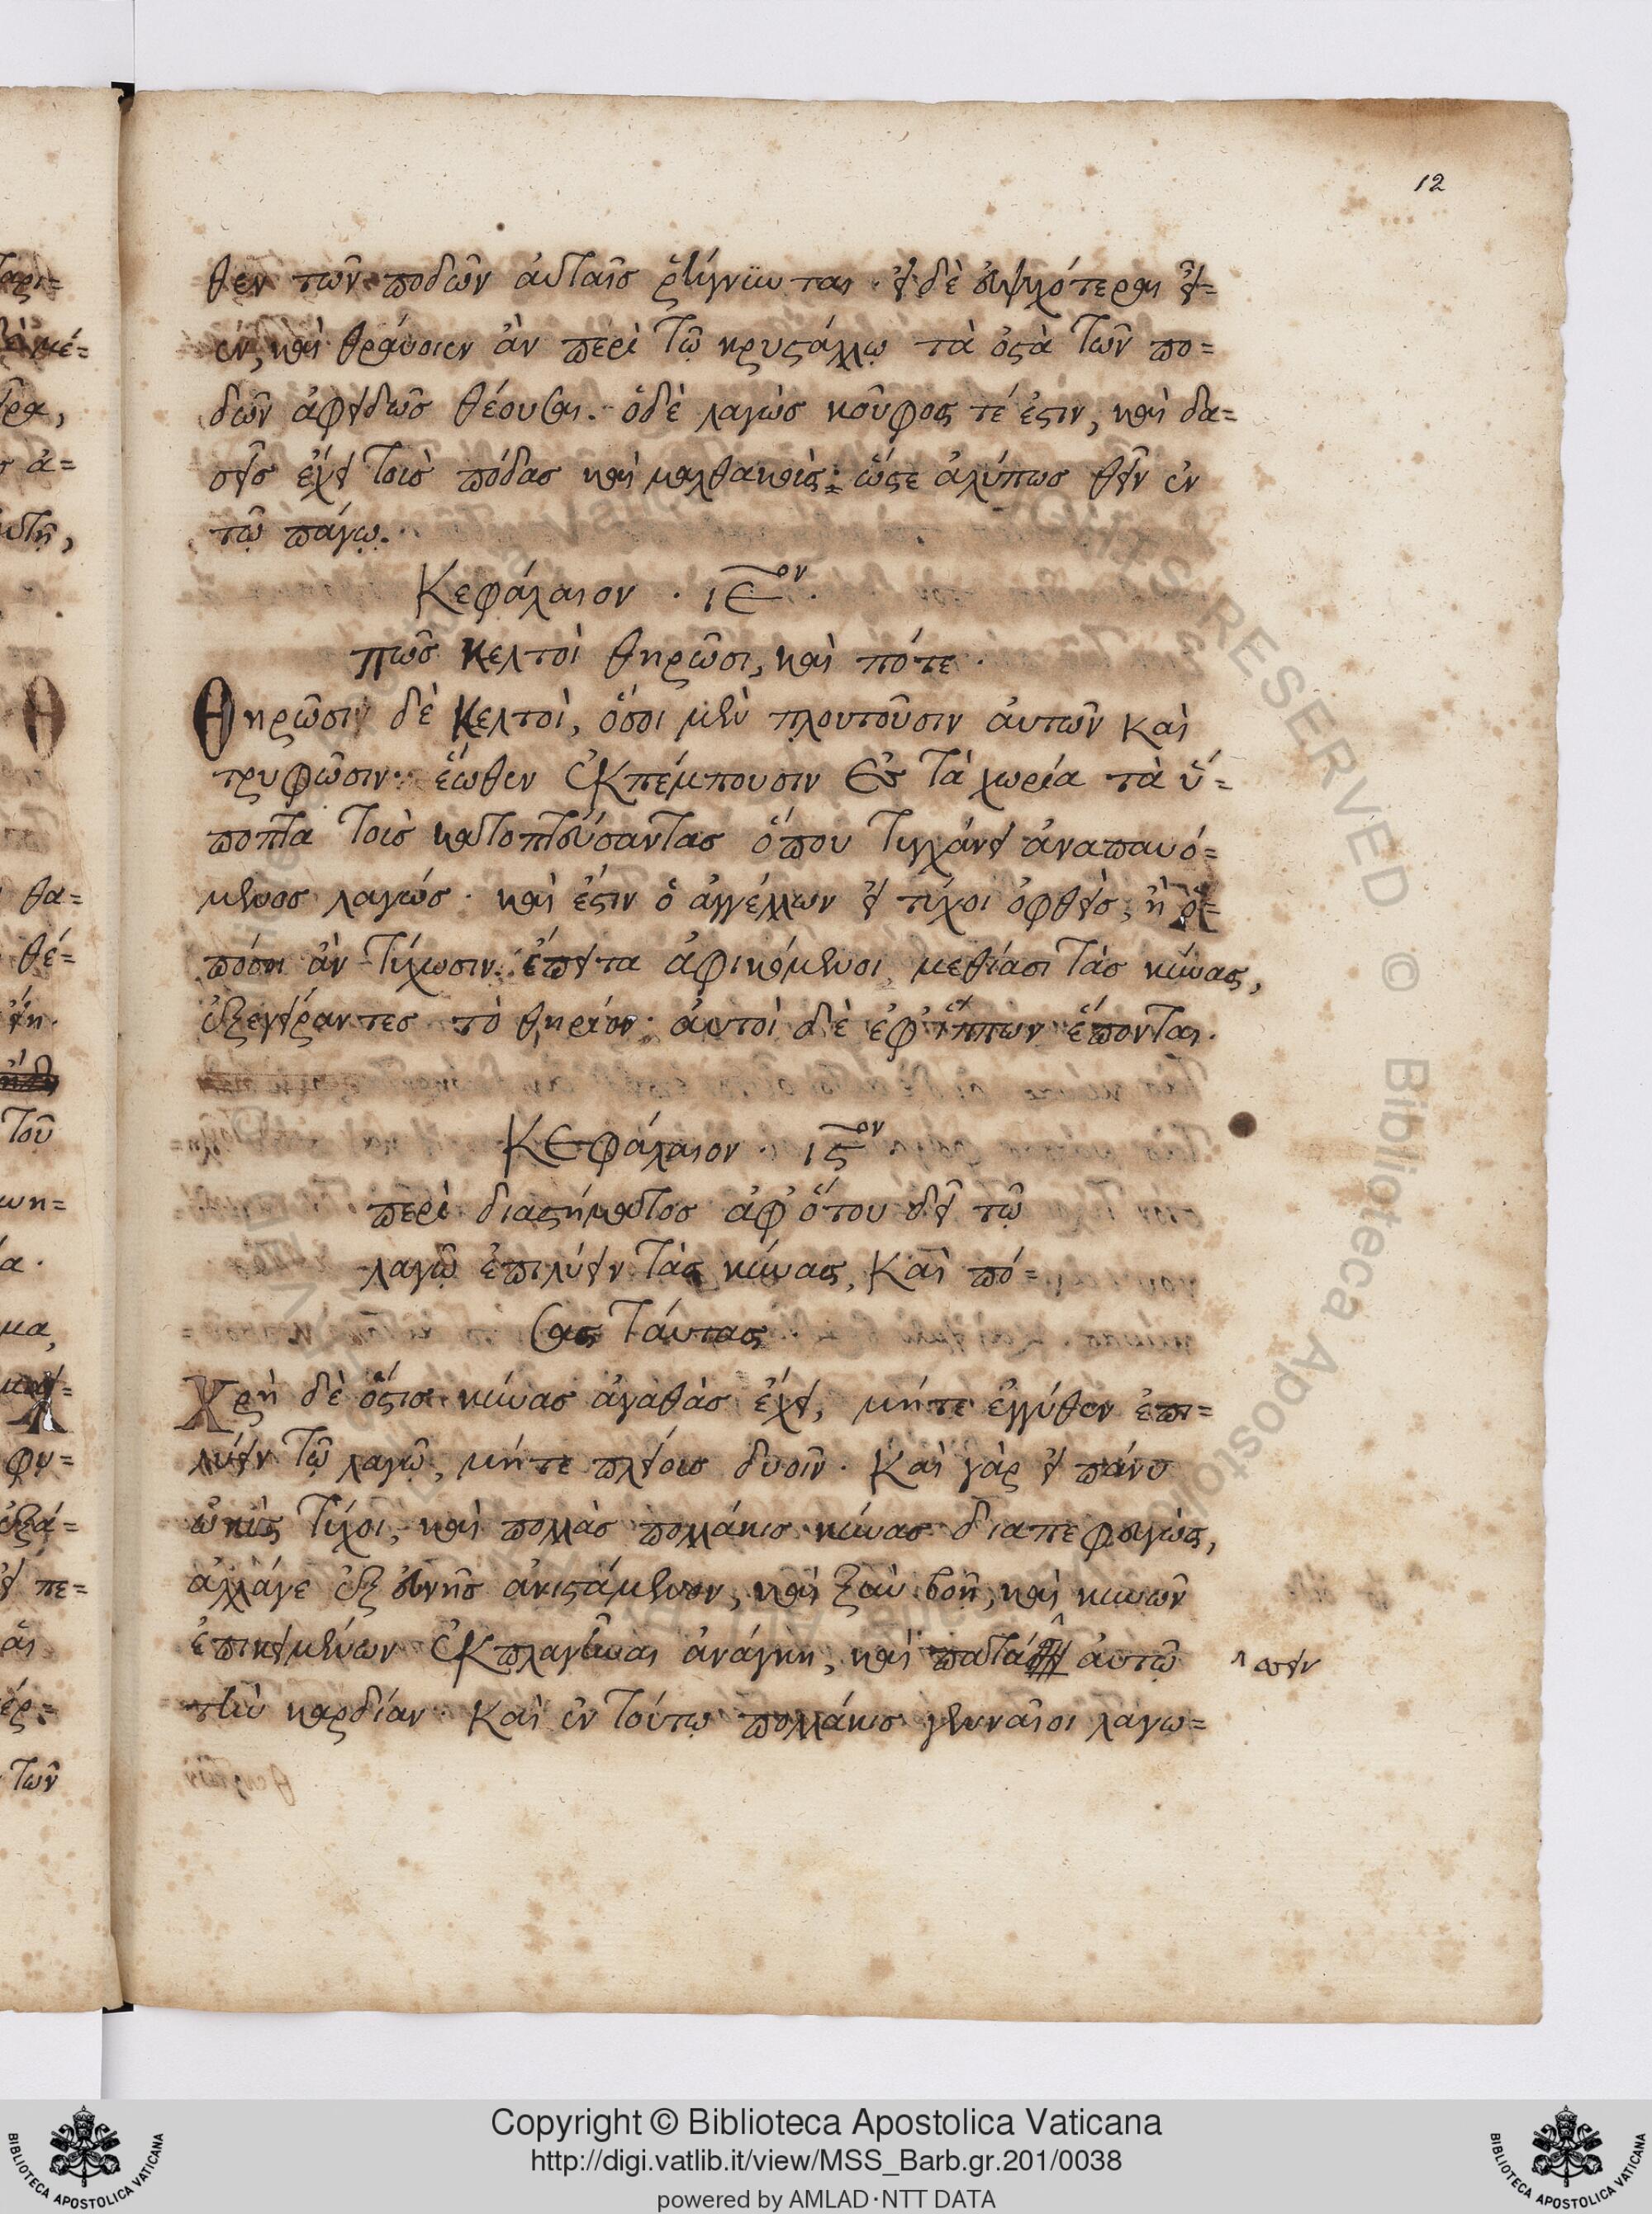 12
θεν τῶν ποδῶν ἀυταῖσ ῥήγνϋνται· εἰ δὲ ἐυψυχότεραι εἶ=
εν, καὶ θράυσιεν ἂν περὶ τῷ κρυστάλλῳ τὰ ὀστὰ τῶν πο=
δῶν ἀφειδῶσ θέουσαι. ὁδὲ λαγὼσ κοῦφος τέ ἐστιν, καὶ δα=
σεῖσ ἔχει τοὺσ πόδασ καὶ μαλθακοὺς: ὥστε ἀλύπωσ θεῖν ἐν
τῷ πάγῳ.
Κεφάλαιον · ιε ον ·
πῶσ κελτοὶ θηρῶσι, καὶ πότε ·
Θηρῶσιν δὲ κελτοὶ, ὅσοι μὲν πλουτοῦσιν ἀυτῶν καὶ
τρυφῶσιν· ἕωθεν ἐκπέμπουσιν ἐς τὰ χωρία τὰ ὕ=
ποπτα τοὺσ κατοπτέυσαντασ ὅπου τυγχάνει ἀναπαυό=
μενοσ λαγώσ · καὶ ἔστιν ὁ ἀγγέλλων εἰ τύχοι ὀφθεὶσ, ἢ ὁ=
πόσοι ἂν τύχωσιν· ἔπειτα ἀφικόμενοι μεθίασι τὰσ κύνας,
ἐξεγείραντεσ τὸ θηρίον· ἀυτοὶ δὲ ἐφ' ἵππων ἕπονται.
Κεφάλαιον · ις ον
περὶ διαστήματοσ ἀφ' ὅτου δεῖ τῷ
λαγῷ ἐπιλύειν τὰς κύνας, καὶ πό=
σας τάυτας
Χρὴ δὲ ὅστισ κύνασ ἀγαθὰσ ἔχει, μήτε ἐγγύθεν ἐπι=
λύειν τῷ λαγῷ, μήτε πλείουσ δυοῖν · Καὶ γὰρ εἰ πάνυ
ὠκὺς τύχοι, καὶ πολλὰσ πολλάκισ κύνασ διαπεφευγὼς,
ἀλλάγε ἐξ ἐυνῆσ ἀνιστάμενον, καὶ ξὺν βοῇ, καὶ κυνῶν
ἐπικειμένων ἐκπλαγῆναι ἀνάγκη, καὶ πατά^ ἀυτῷ ^ σειν
τὴν καρδίαν · Καὶ ἐν τούτῳ πολλάκισ γενναῖοι λαγω=
Copyright © Biblioteca Apostolica Vaticana
http://digi.vatlib.it/view/MSS_Barb.gr.201/0038
powered by AMLAD·NTT DATA